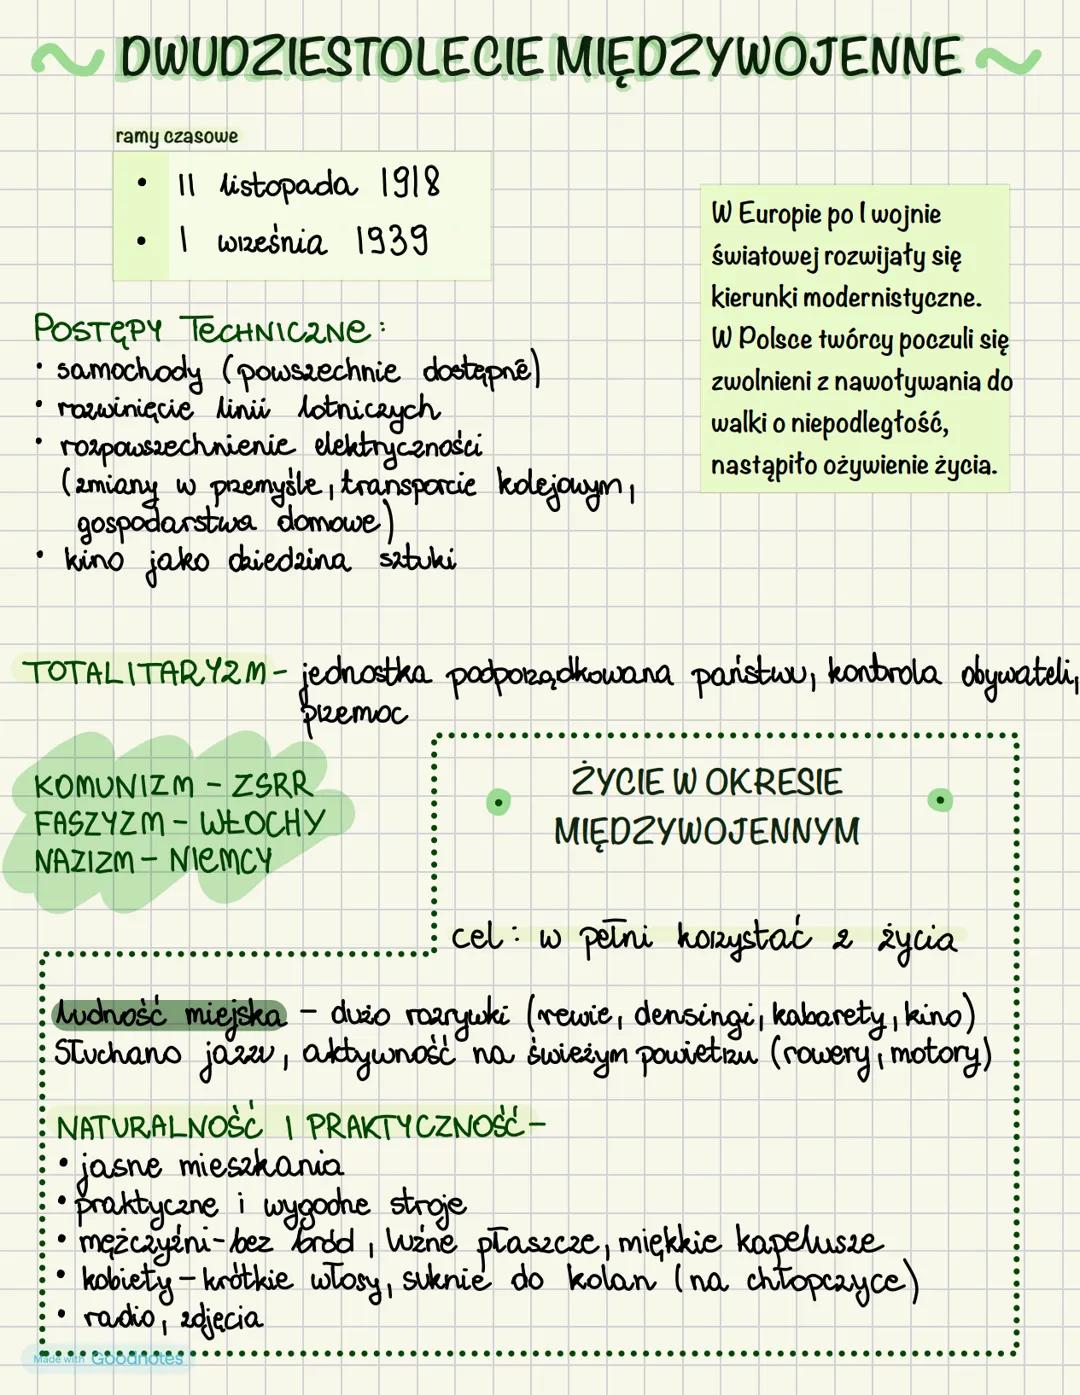 ~ DWUDZIESTOLECIE MIĘDZYWOJENNE ~
ramy czasowe
• 11 listopada 1918
• 1 września 1939
W Europie po I wojnie
światowej rozwijały się
kierunki modernistyczne.
W Polsce twórcy poczuli się
zwolnieni z nawoływania do
walki o niepodległość,
nastąpiło ożywienie życia.
POSTĘPY TECHNICZNE:
• samochody (powszechnie dostępne)
• rozwinięcie linii lotniczych
• rozpowszechnienie elektryczności
(zmiany w przemyśle, transporcie kolejowym,
gospodarstwa domowe)
• kino jako dziedzina sztuki
TOTALITARYZM - jednostka podporządkowana państwu, kontrola obywateli,
przemoc
KOMUNIZM - ZSRR
FASZYZM - WŁOCHY
NAZIZM - NIEMCY
ŻYCIE W OKRESIE
MIĘDZYWOJENNYM
cel: w pełni korzystać z życia
ludność miejska - dużo rozrywki (rewie, densingi, kabarety, kino)
Słuchano jazzu, aktywność na świeżym powietrzu (rowery, motory)
NATURALNOŚĆ I PRAKTYCZNOŚĆ -
• jasne mieszkania
• praktyczne i wygodne stroje
• mężczyźni - bez bród, luźne płaszcze, miękkie kapelusze
• kobiety - krótkie włosy, suknie do kolan (na chłopczyce)
• radio, zdjęcia
Made with Goodnotes